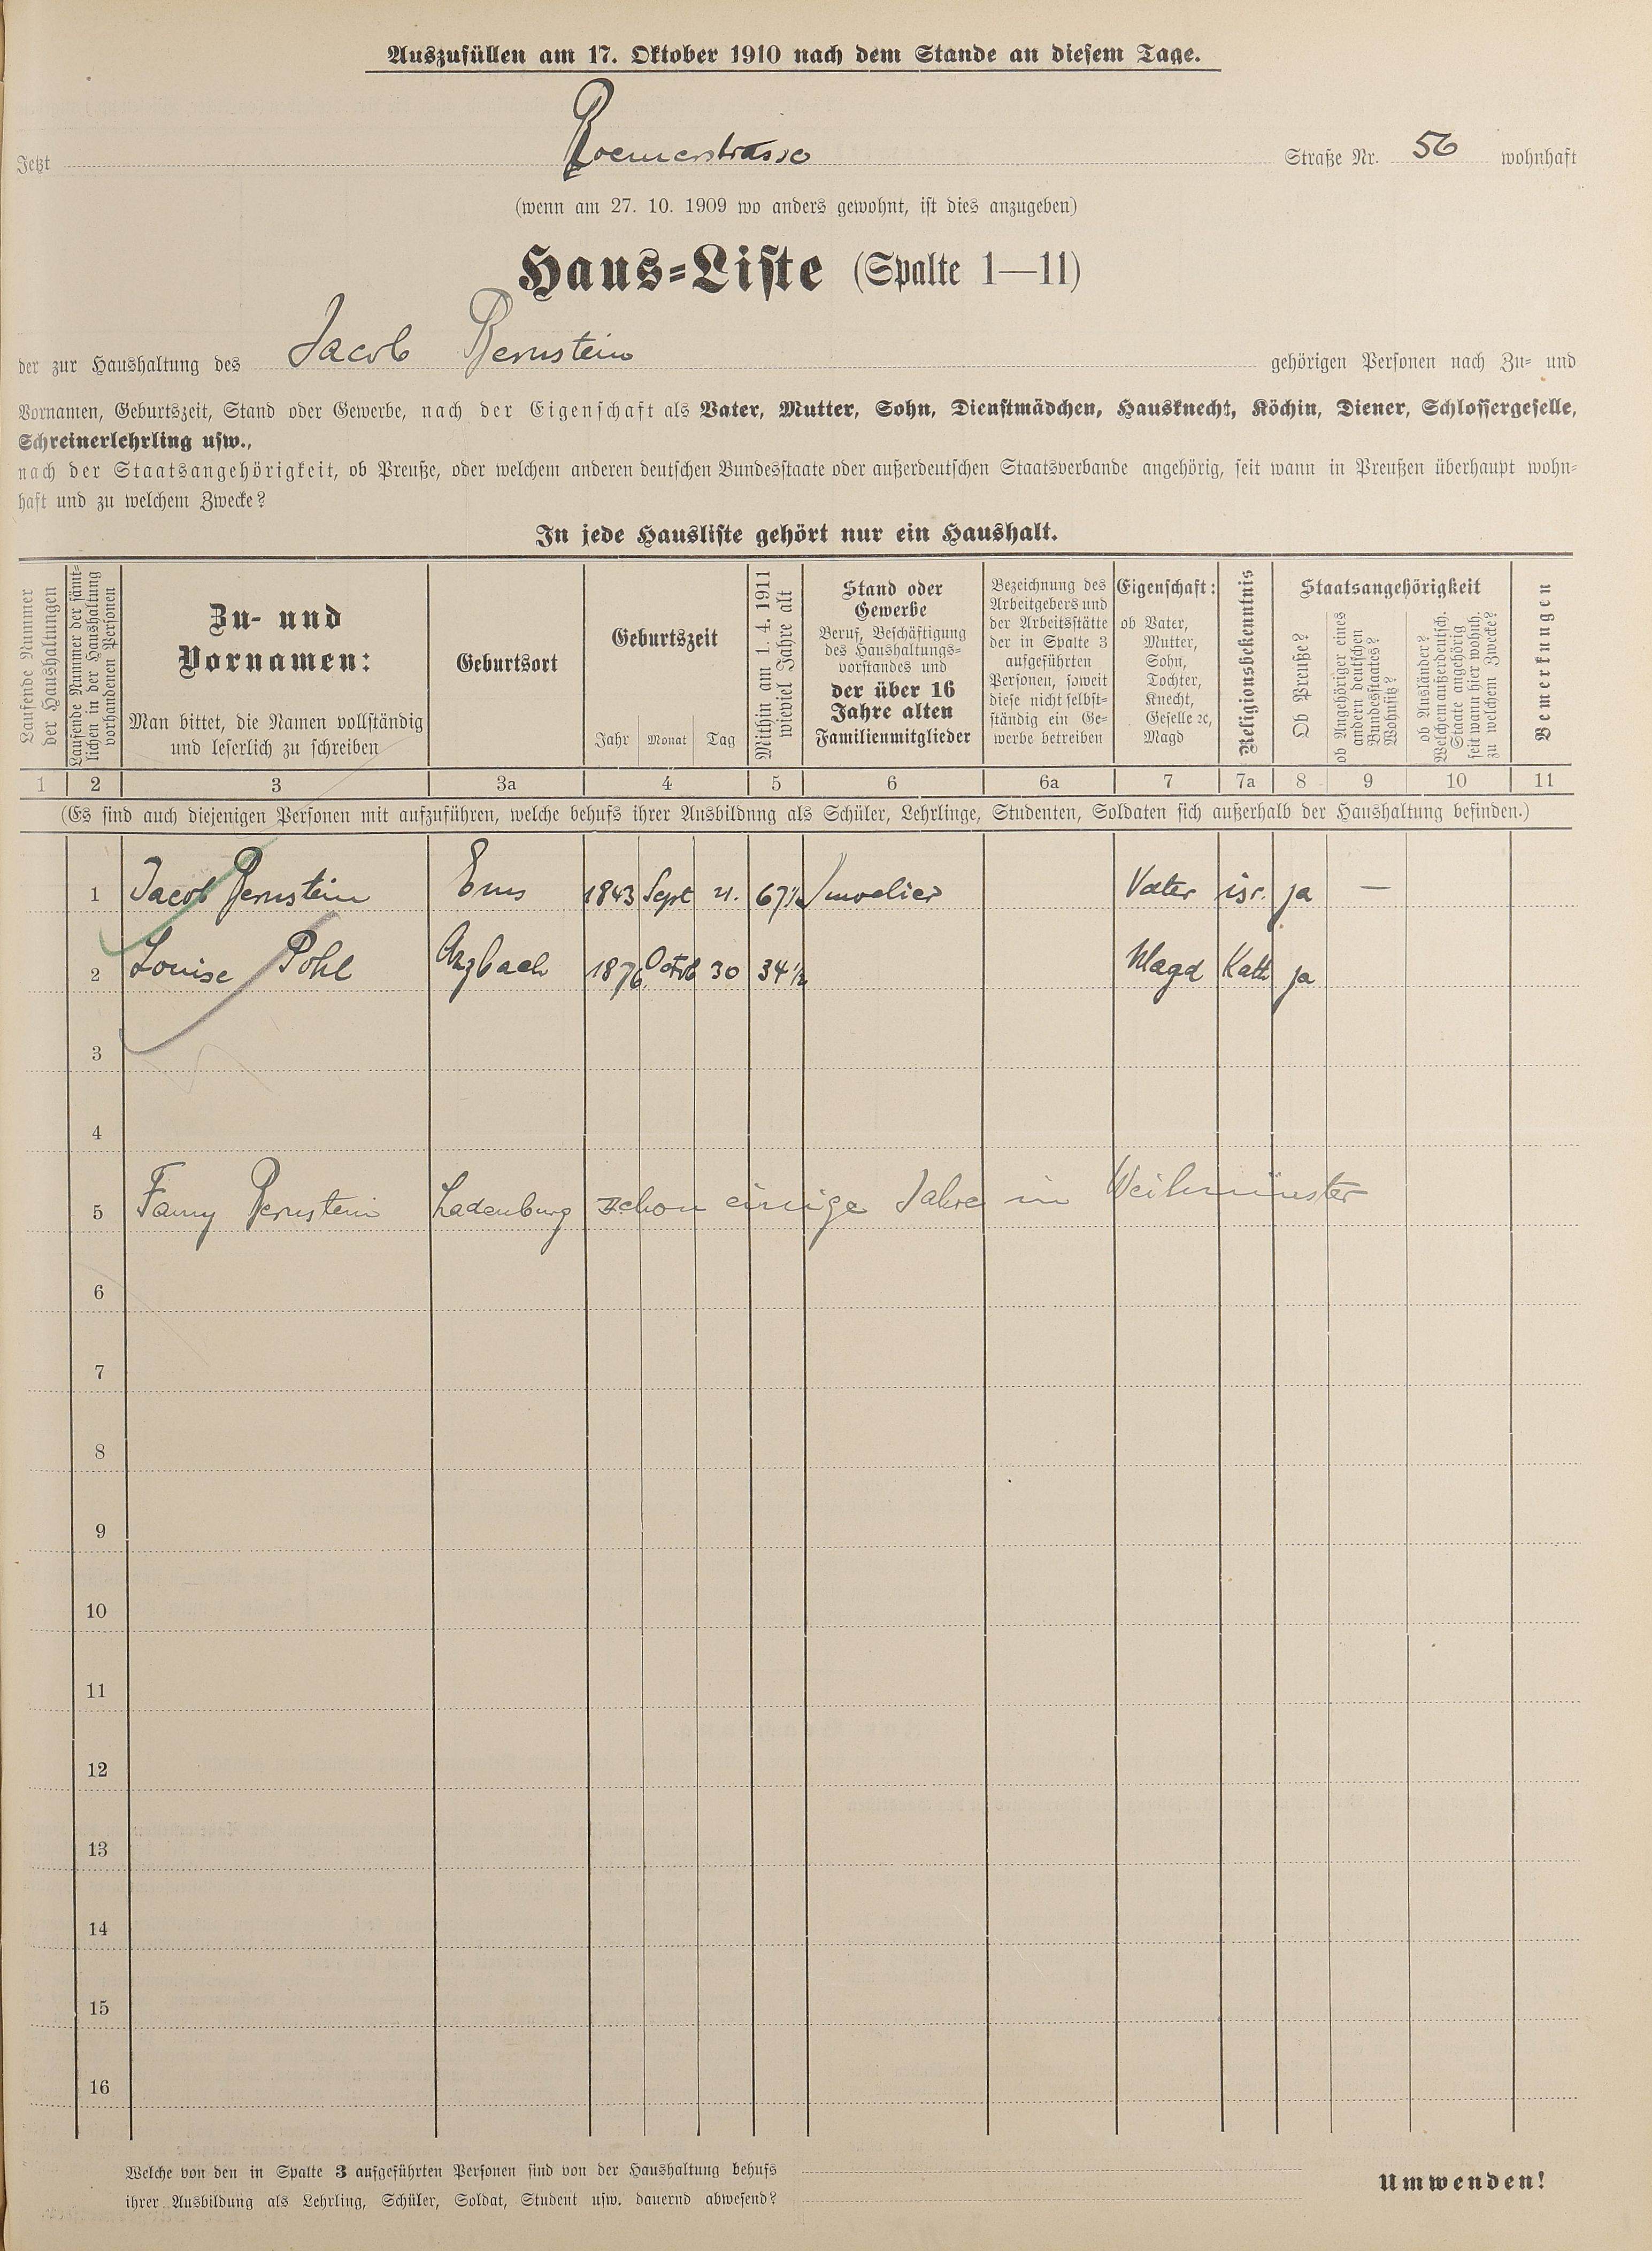 Auszufüllen am 17. Oktober 1910 nach dem Stande an diesem Tage.
Jetzt Roemerstrasse Straße Nr. 56 wohnhaft
(wenn am 27. 10. 1909 wo anders gewohnt, ist dies anzugeben)
Haus-Liste (Spalte 1—11)
der zur Haushaltung des Jacob Bernstein gehörigen Personen nach Zu- und
Vornamen, Geburtszeit, Stand oder Gewerbe, nach der Eigenschaft als Vater, Mutter, Sohn, Dienstmädchen, Hausknecht, Köchin, Diener, Schlossergeselle,
Schreinerlehrling usw.,
nach der Staatsangehörigkeit, ob Preuße, oder welchem anderen deutschen Bundesstaate oder außerdeutschen Staatsverbande angehörig, seit wann in Preußen überhaupt wohn-
haft und zu welchem Zwecke?
In jede Hausliste gehört nur ein Haushalt.
Laufende Nummer
der Haushaltungen
Laufende Nummer der sämt-
lichen in der Haushaltung
vorhandenen Personen
Zu- und
Vornamen:
Man bittet, die Namen vollständig
und leserlich zu schreiben
Geburtsort
Geburtszeit
Jahr Monat Tag
Mithin am 1. 4. 1911
wieviel Jahre alt
Stand oder
Gewerbe
Beruf, Beschäftigung
des Haushaltungs-
vorstandes und
der über 16
Jahre alten
Familienmitglieder
Bezeichnung des
Arbeitgebers und
der Arbeitsstätte
der in Spalte 3
aufgeführten
Personen, soweit
diese nicht selbst-
ständig ein Ge-
werbe betreiben
Eigenschaft:
ob Vater,
Mutter,
Sohn,
Tochter,
Knecht,
Geselle ꝛc,
Magd
Religionsbekenntnis
Staatsangehörigkeit
Ob Preuße?
ob Angehöriger eines
andern deutschen
Bundesstaates?
Wohnsitz?
ob Ausländer?
Welchem außerdeutsch.
Staate angehörig
seit wann hier wohnh.
zu welchem Zwecke?
Bemerkungen
1 2 3 3a 4 5 6 6a 7 7a 8 9 10 11
(Es sind auch diejenigen Personen mit aufzuführen, welche behufs ihrer Ausbildung als Schüler, Lehrlinge, Studenten, Soldaten sich außerhalb der Haushaltung befinden.)
1 Jacob Bernstein Ems 1843 Sept 21. 67½ Juwelier Vater isr. ja —
2 Louise Pohl Arzbach 1876 Octob 30 34½ Magd Kath ja
3
4
5 Fanny Bernstein Ladenburg schon einige Jahre in Weilmünster
6
7
8
9
10
11
12
13
14
15
16
Welche von den in Spalte 3 aufgeführten Personen sind von der Haushaltung behufs
ihrer Ausbildung als Lehrling, Schüler, Soldat, Student usw. dauernd abwesend?
Umwenden!